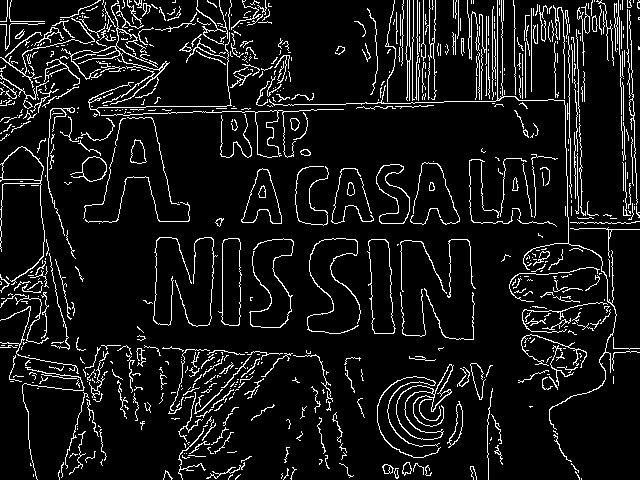 A REP.
A CASA LAP
NISSIN